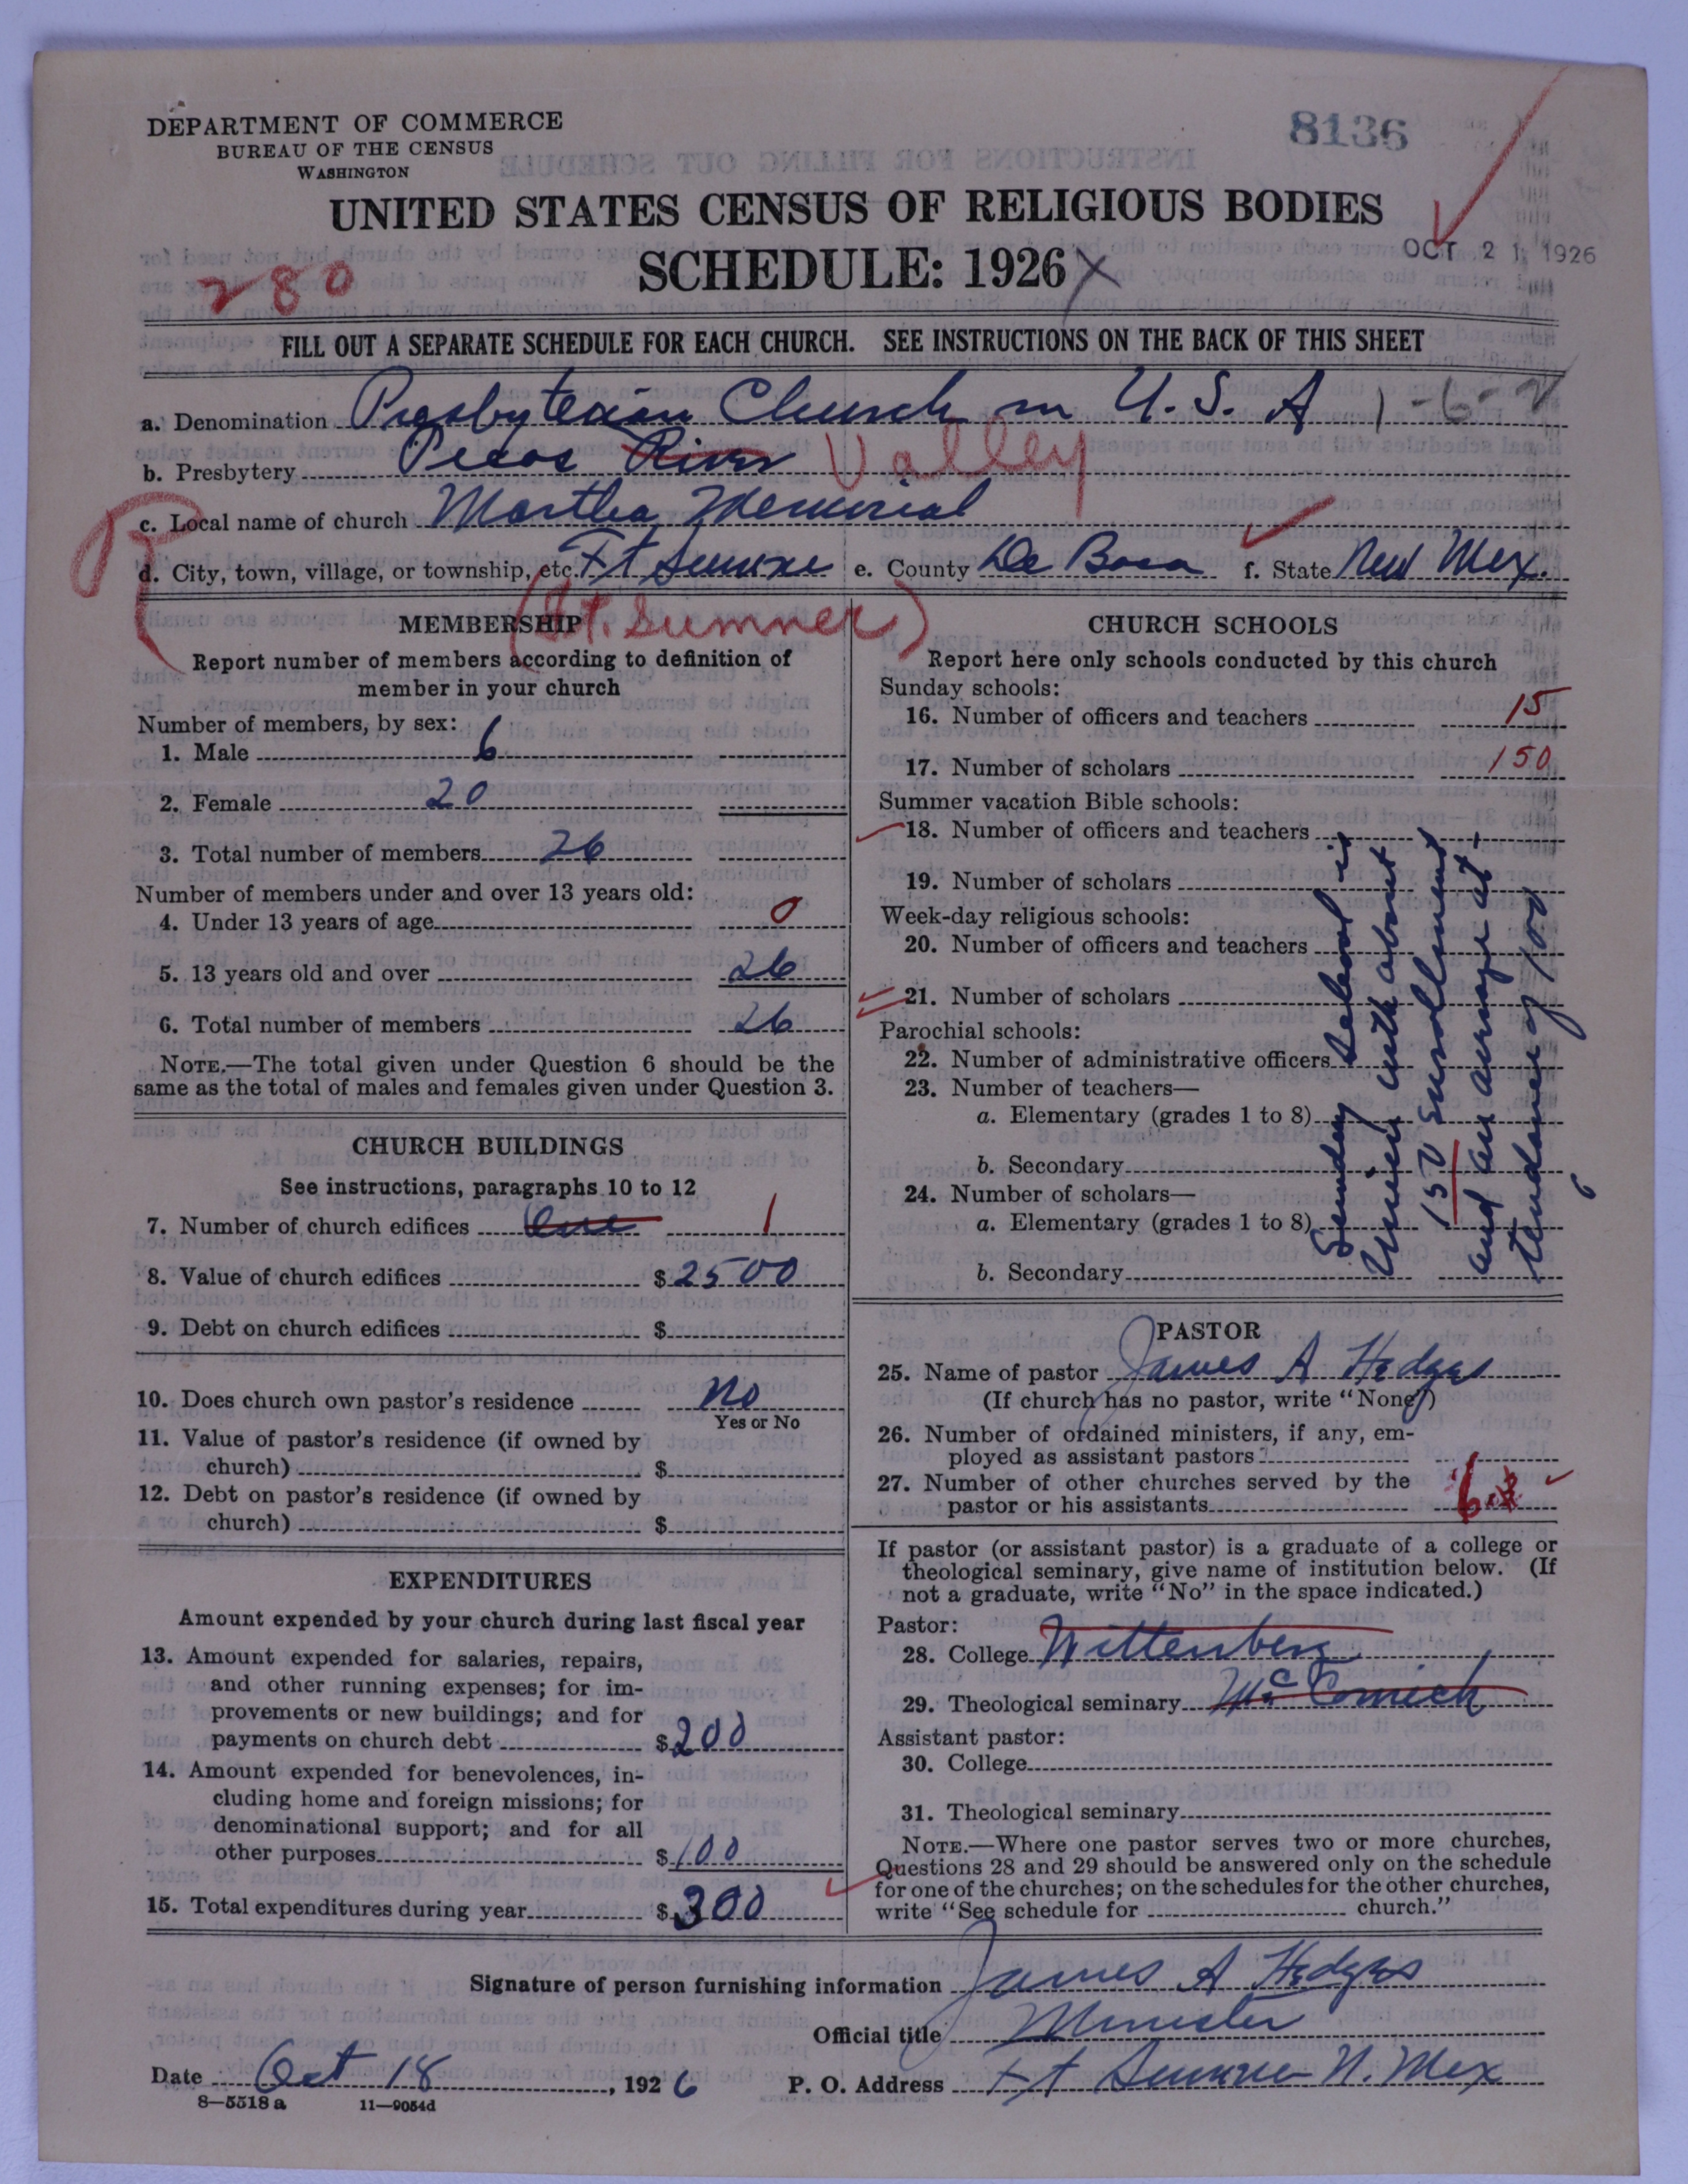 DEPARTMENT OF COMMERCE
BUREAU OF THE CENSUS
WASHINGTON
8136
UNITED STATES CENSUS OF RELIGIOUS BODIES
SCHEDULE: 1926 X
OCT 21 1926
280
FILL OUT A SEPARATE SCHEDULE FOR EACH CHURCH. SEE INSTRUCTIONS ON THE BACK OF THIS SHEET
a. Denomination Presbyterian Church in U. S. A 1-6-2
b. Presbytery Pecos River Valley
c. Local name of church Martha Memorial
d. City, town, village, or township, etc. Ft Sumner e. County De Baca f. State New Mex.
(Ft. Sumner)
MEMBERSHIP
Report number of members according to definition of
member in your church
Number of members, by sex:
1. Male 6
2. Female 20
3. Total number of members 26
Number of members under and over 13 years old:
4. Under 13 years of age 0
5. 13 years old and over 26
6. Total number of members 26
NOTE.—The total given under Question 6 should be the
same as the total of males and females given under Question 3.
CHURCH BUILDINGS
See instructions, paragraphs 10 to 12
7. Number of church edifices One 1
8. Value of church edifices $ 2500
9. Debt on church edifices $
10. Does church own pastor's residence No
Yes or No
11. Value of pastor's residence (if owned by
church) $
12. Debt on pastor's residence (if owned by
church) $
EXPENDITURES
Amount expended by your church during last fiscal year
13. Amount expended for salaries, repairs,
and other running expenses; for im-
provements or new buildings; and for
payments on church debt $ 200
14. Amount expended for benevolences, in-
cluding home and foreign missions; for
denominational support; and for all
other purposes $ 100
15. Total expenditures during year $ 300
CHURCH SCHOOLS
Report here only schools conducted by this church
Sunday schools:
16. Number of officers and teachers 15
17. Number of scholars 150
Summer vacation Bible schools:
18. Number of officers and teachers
19. Number of scholars
Week-day religious schools:
20. Number of officers and teachers
21. Number of scholars
Parochial schools:
22. Number of administrative officers
23. Number of teachers—
a. Elementary (grades 1 to 8)
b. Secondary
24. Number of scholars—
a. Elementary (grades 1 to 8)
b. Secondary
Sunday School is
Union with about
150 enrollment
and an average at-
tendance of 100
PASTOR
25. Name of pastor James A Hedges
(If church has no pastor, write "None")
26. Number of ordained ministers, if any, em-
ployed as assistant pastors
27. Number of other churches served by the
pastor or his assistants 6
If pastor (or assistant pastor) is a graduate of a college or
theological seminary, give name of institution below. (If
not a graduate, write "No" in the space indicated.)
Pastor:
28. College Wittenberg
29. Theological seminary McCormick
Assistant pastor:
30. College
31. Theological seminary
NOTE.—Where one pastor serves two or more churches,
Questions 28 and 29 should be answered only on the schedule
for one of the churches; on the schedules for the other churches,
write "See schedule for church."
Signature of person furnishing information James A Hedges
Official title Minister
Date Oct 18, 1926 P. O. Address Ft Sumner N. Mex
8—5518 a 11—9054d